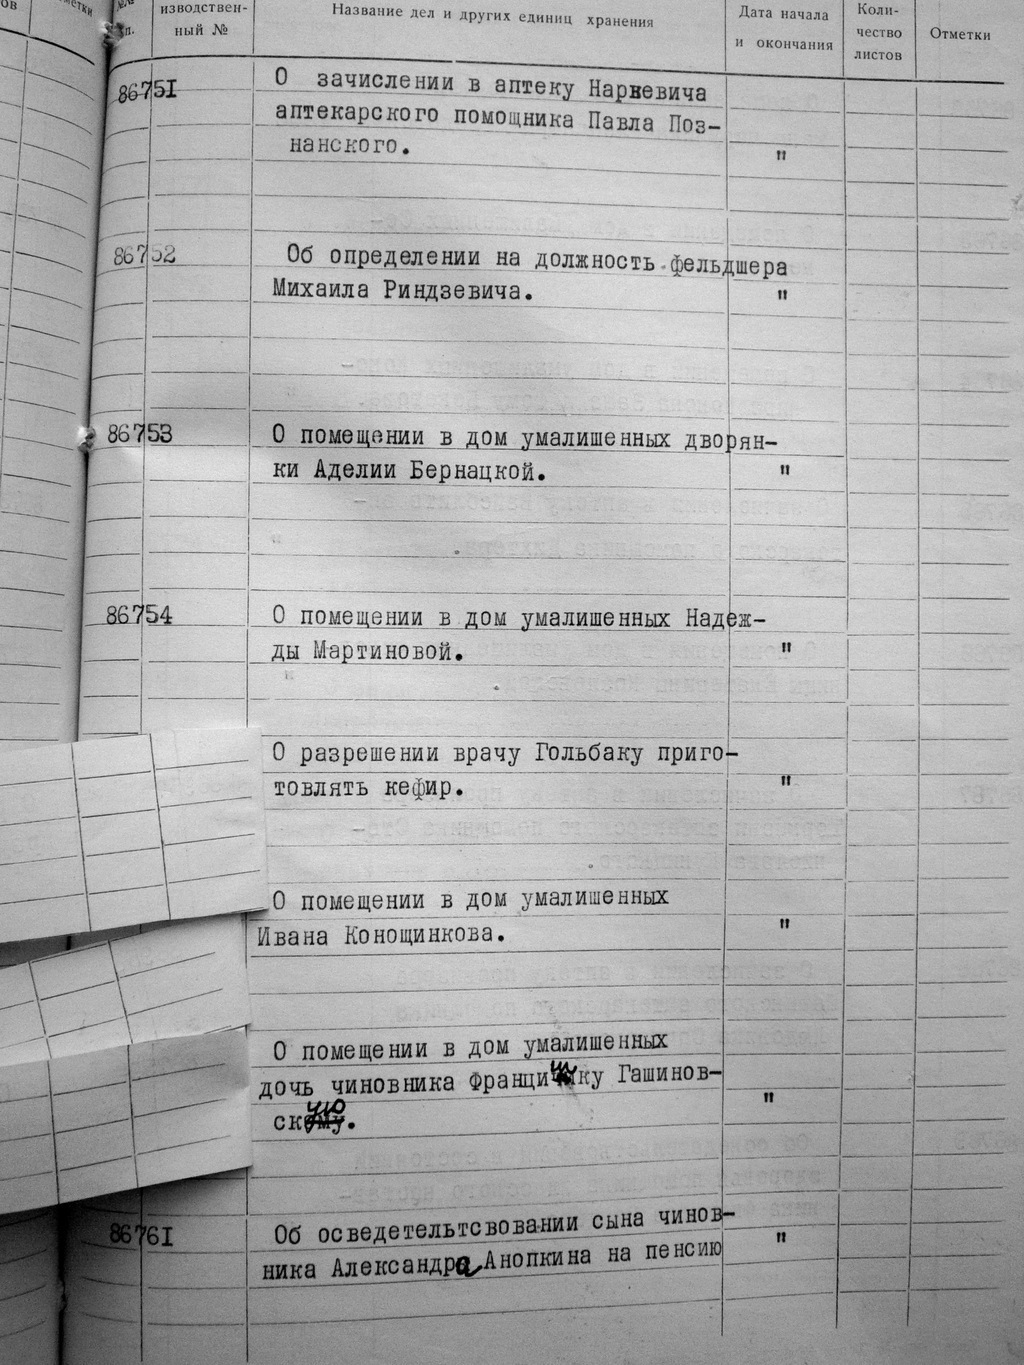 изводствен-
ный №
Название дел и других единиц хранения
Дата начала
и окончания
Коли-
чество
листов
Отметки
86751
О зачислении в аптеку Наркевича
аптекарского помощника Павла Поз-
нанского.
"
86752
Об определении на должность фельдшера
Михаила Риндзевича.
"
86753
О помещении в дом умалишенных дворян-
ки Аделии Бернацкой.
"
86754
О помещении в дом умалишенных Надеж-
ды Мартиновой.
"
О разрешении врачу Гольбаку приго-
товлять кефир.
"
О помещении в дом умалишенных
Ивана Конощинкова.
"
О помещении в дом умалишенных
дочь чиновника Франци ку Гашинов-
скую.
"
86761
Об осведетельтсвовании сына чинов-
ника Александра Анопкина на пенсию
"